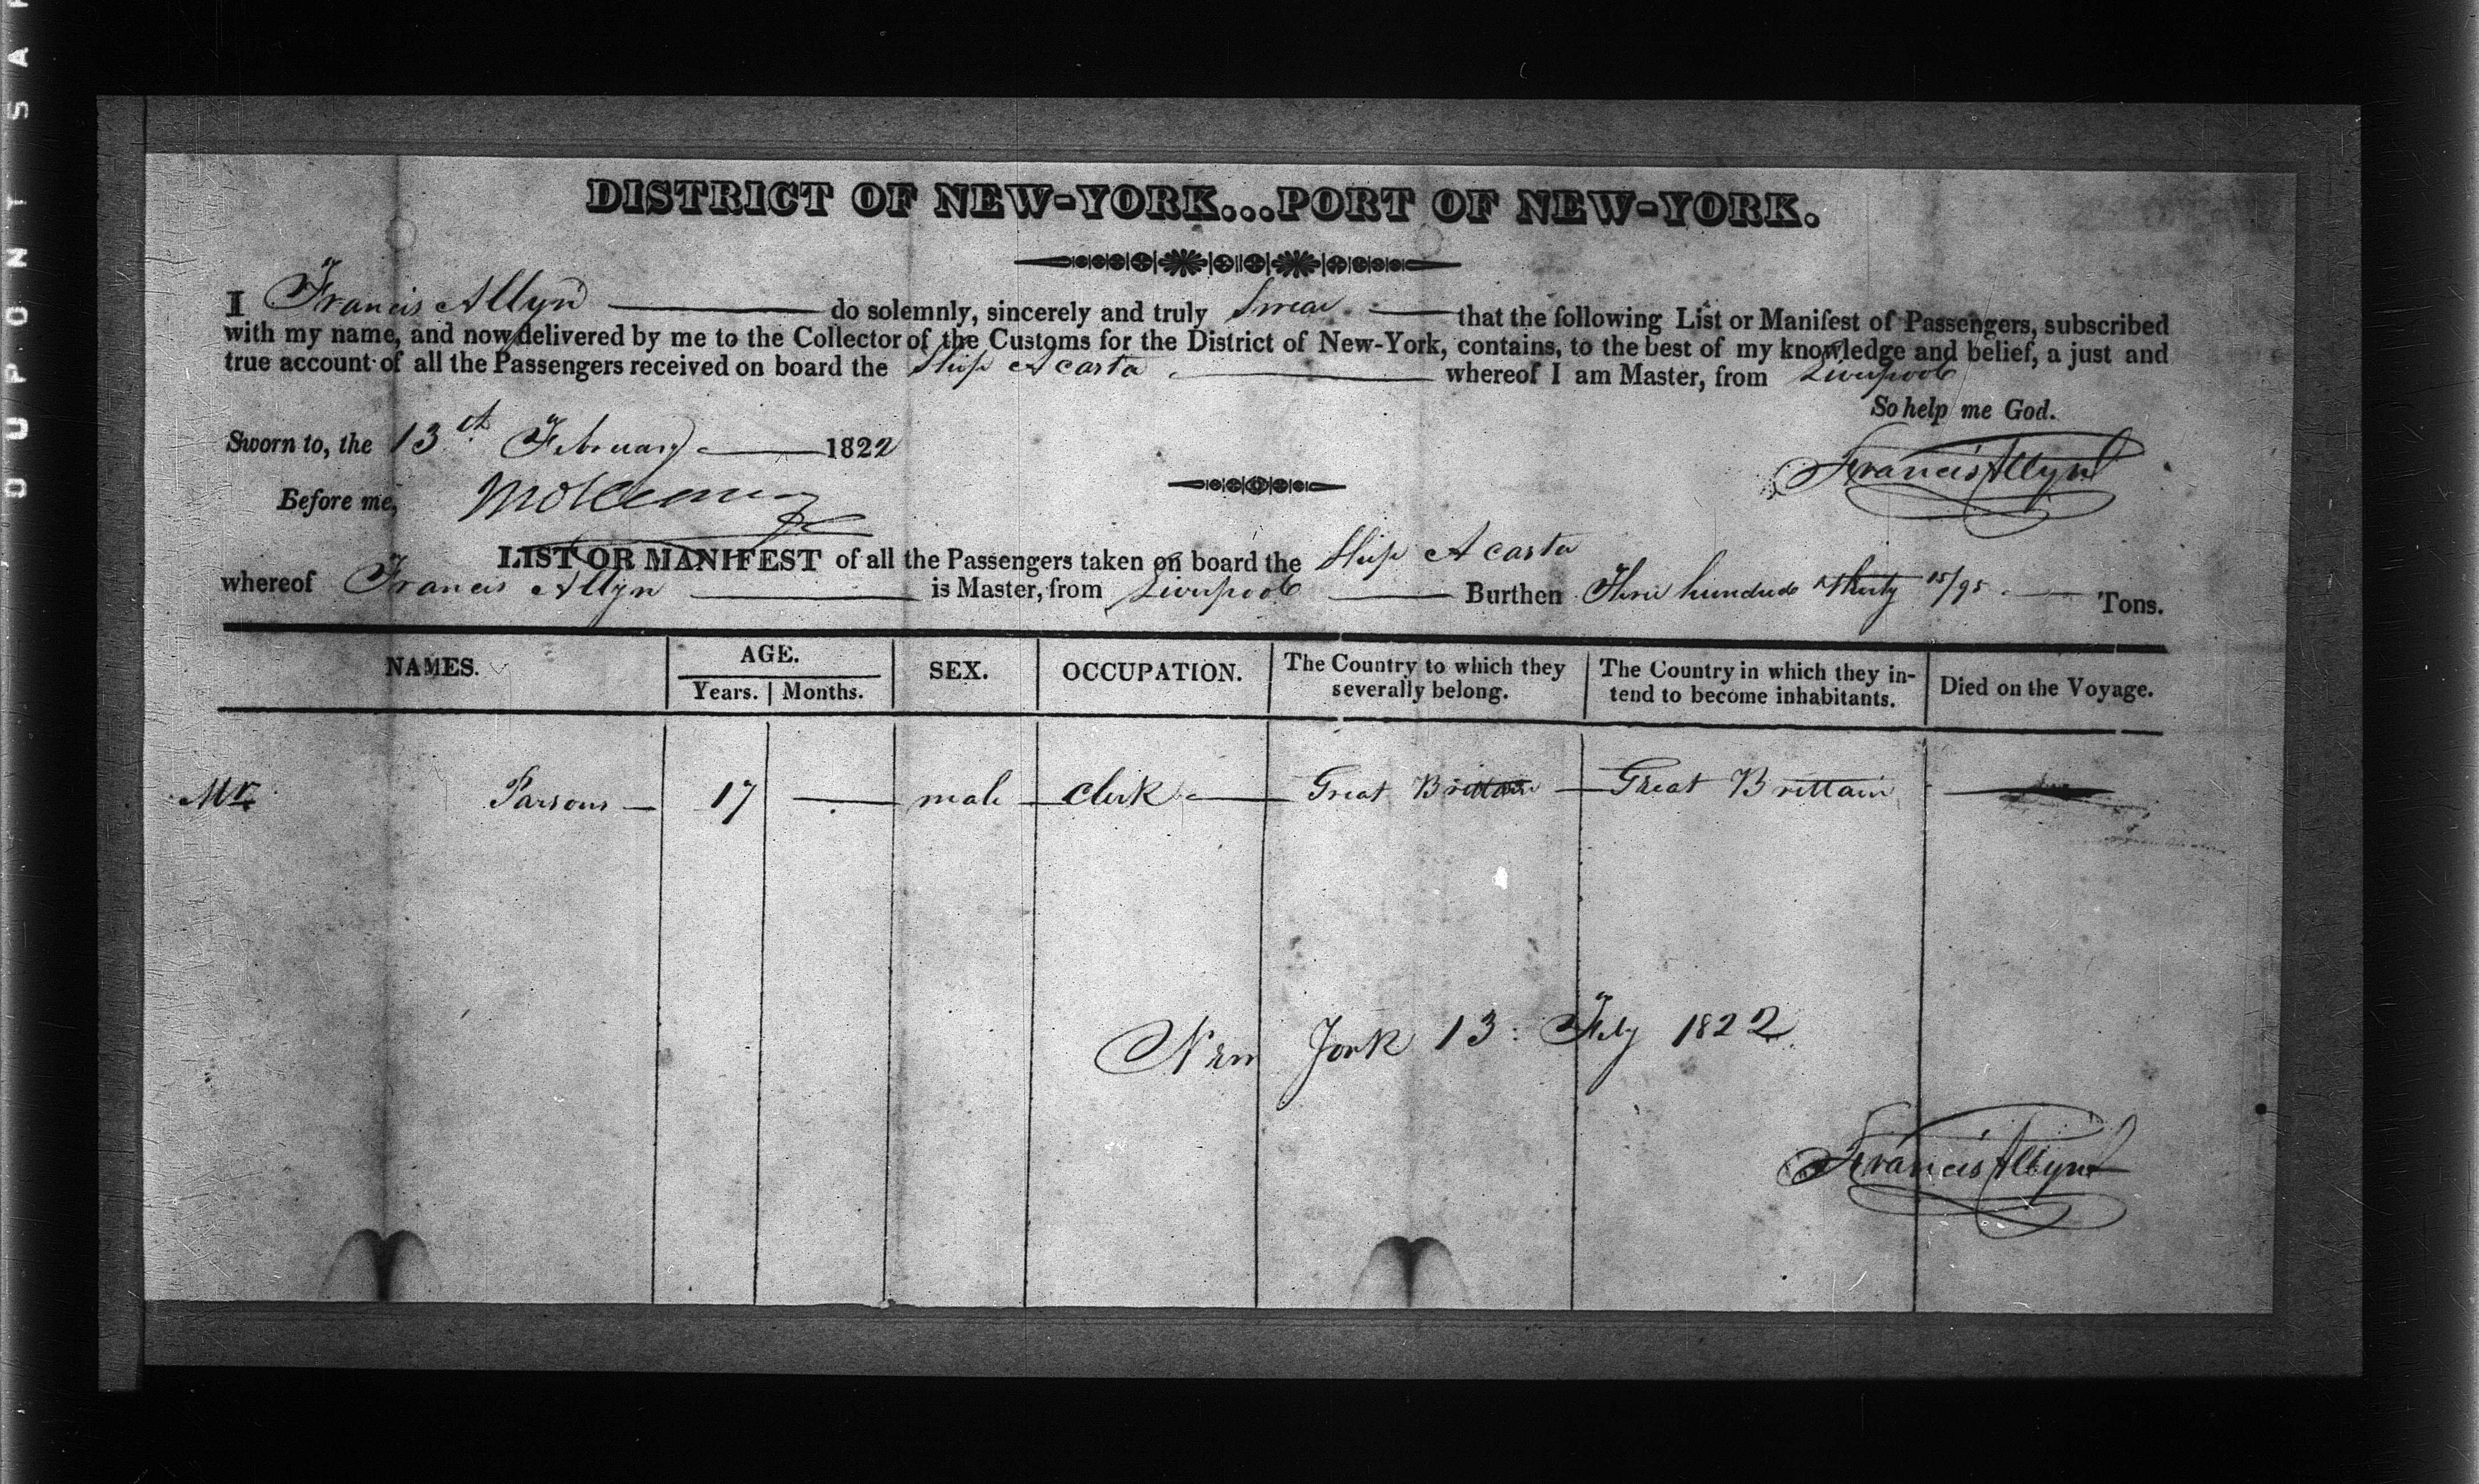 DISTRICT OF NEW-YORK...PORT OF NEW-YORK.
I Francis Allyn do solemnly, sincerely and truly Swear that the following List or Manifest of Passengers, subscribed
with my name, and now delivered by me to the Collector of the Customs for the District of New-York, contains, to the best of my knowledge and belief, a just and
true account of all the Passengers received on board the Ship Acasta whereof I am Master, from Liverpool
So help me God.
Sworn to, the 13th February 1822
Francis Allyn
Before me,
LIST OR MANIFEST of all the Passengers taken on board the Ship Acasta
whereof Francis Allyn is Master, from Liverpool Burthen Three hundred & thirty 15/95 Tons.
NAMES. AGE. Years. Months. SEX. OCCUPATION. The Country to which they severally belong. The Country in which they intend to become inhabitants. Died on the Voyage.
Mr. Parsons 17 male clerk Great Brittain Great Brittain
New York 13: Feby 1822
Francis Allyn
DUPONT SA